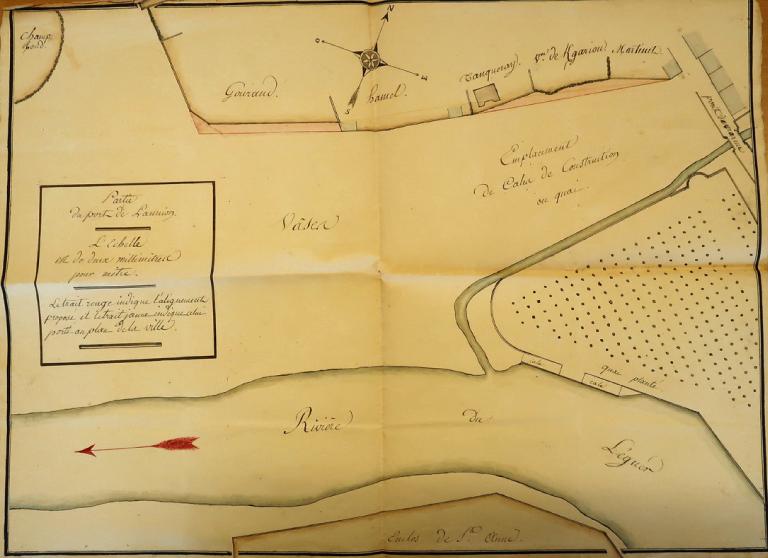 champ
N
O
E
S
Gouraud.
hamel.
Tanqueray.
Vve de Kgariou
Morteuil
Emplacement
De Cale de Construction
ou quai.
Vâses
Partie
du port de Lannion
L'echelle
est de deux millimètres
pour mètre.
Le trait rouge indique l'alignement
proposé et le trait jaune indique celui
porté au plan de la ville.
cale
cale
quai planté
Rivière
Du
Léguer
Enclos de Ste. Anne.